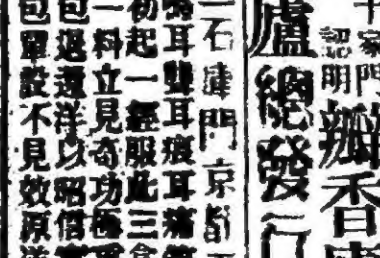 十家門
認明瓣香
廬總發行
石庫門京都
耳聾耳痕耳痛
初起一經服此三
一料立見奇功
包退還洋以昭信
包單設不見效原洋